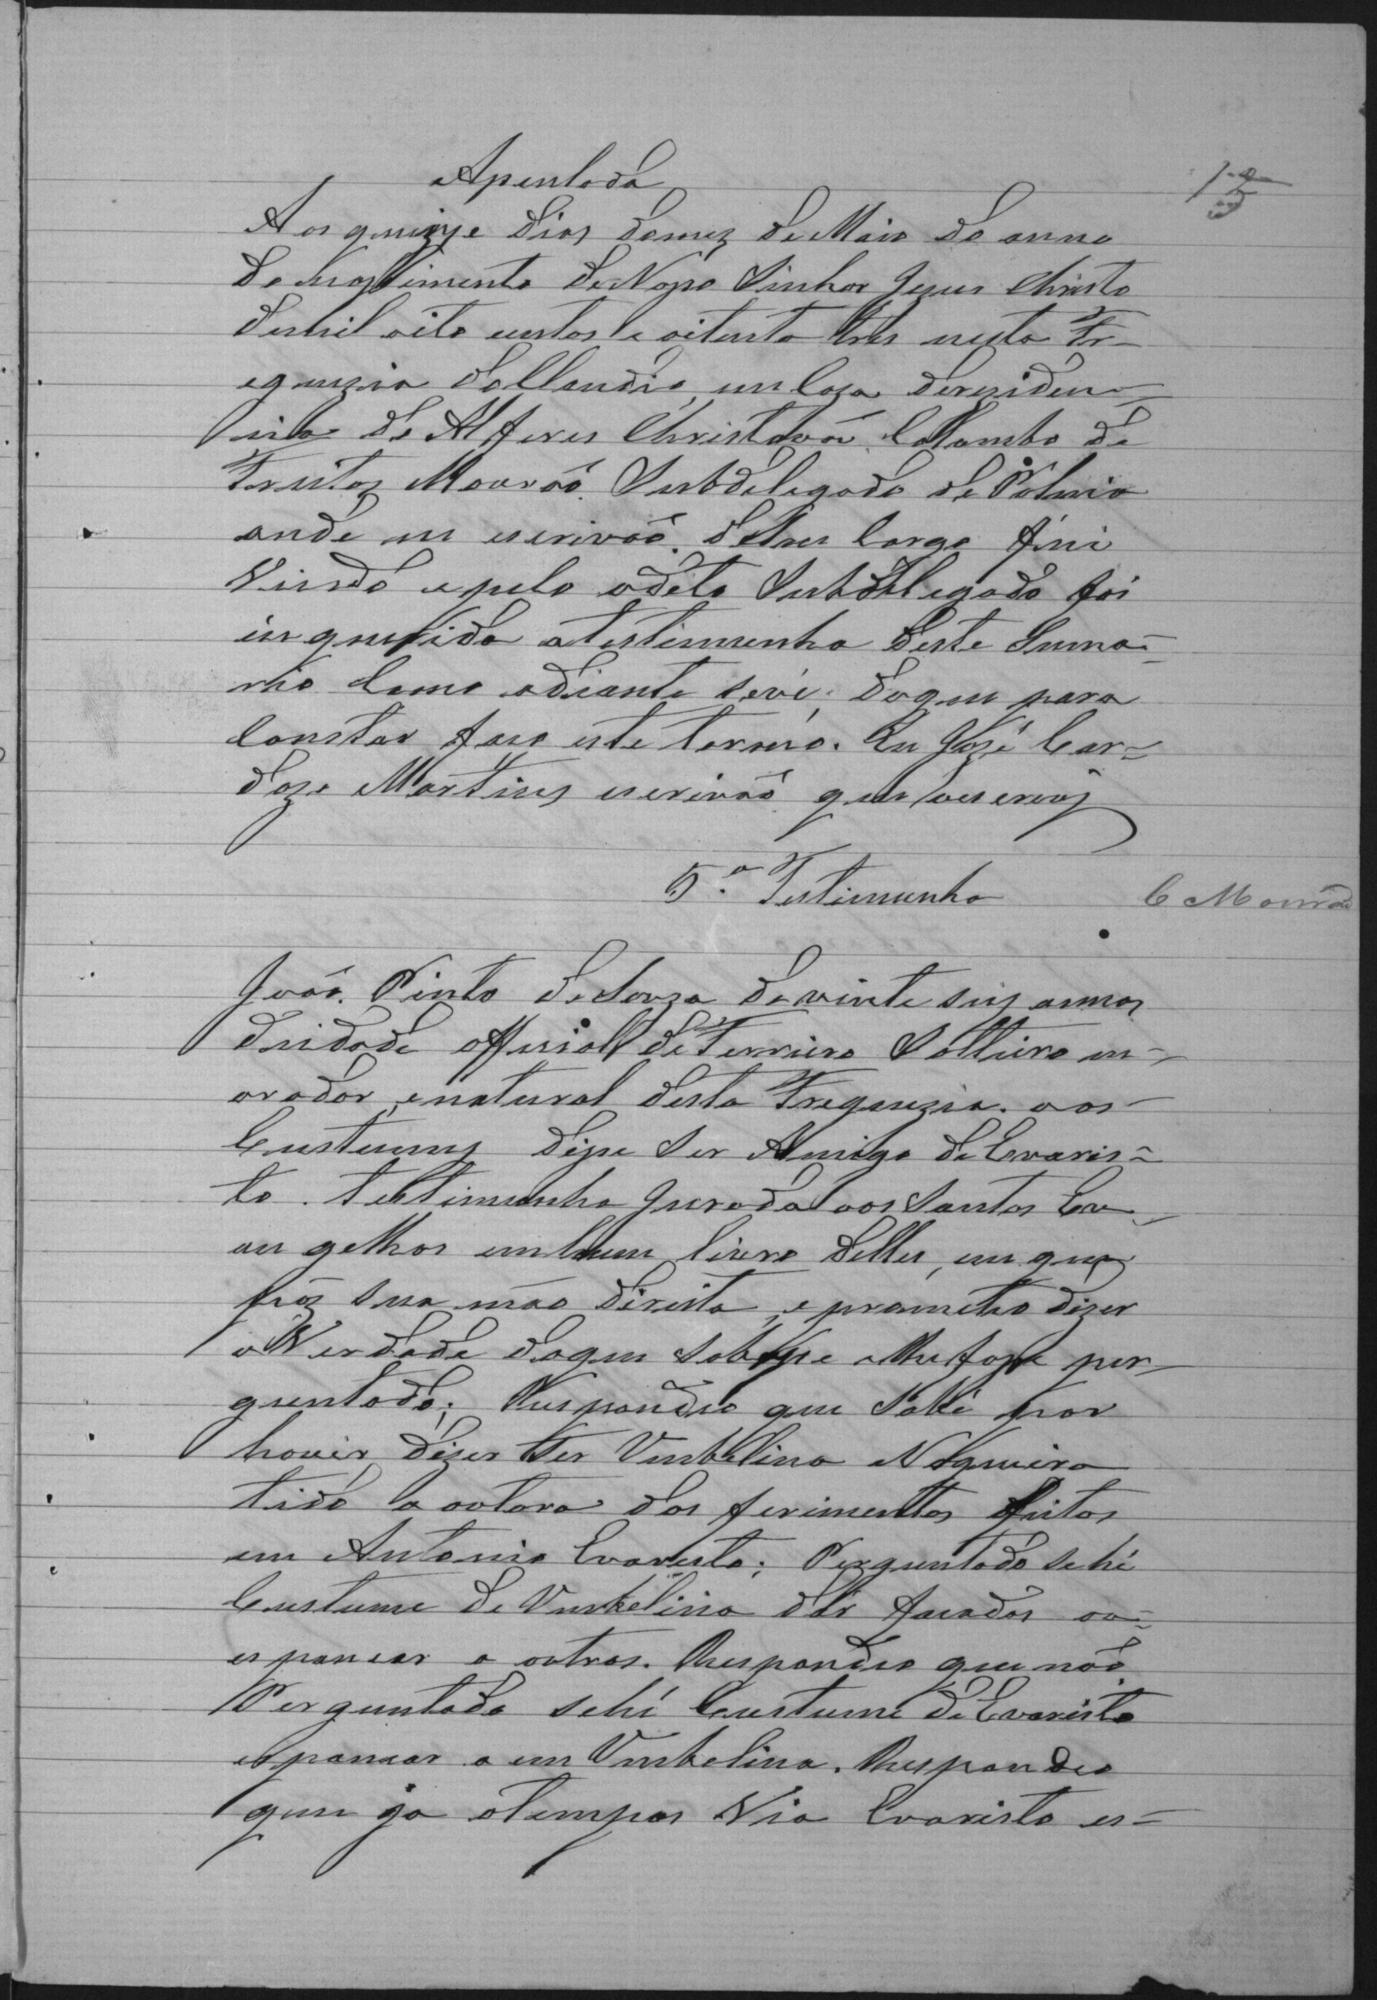 Apentada
13
Aos quinze dias domez de Maio do anno
do nassimento de Nosso Sinhor Jezus Christo
demil oito centos e oitenta tres nesta Fr-
eguezia em Caza dereziden-
cia do Alferes Christovão Colombo de
Freitas Mourão. Subdelegado de Policia
onde eu escrivão de seu Cargo fui
Vindo e pelo o dito Subdelegado foi
inquirida a testimunha deste Suma-
rio Como adiante sevê; doque para
Constar faço este termo. Eu José Car-
dozo Martins escrivão que o escrevi
5.ª Testimunha
C Mourão
João Pinto de Souza de vinte seis annos
deidade official de Ferreiro Solteiro m-
orador, enatural desta Freguezia. aos
Custumes disse Ser Amigo de Evaris-
to. testimunha Jurada aos Santos Ev-
angelhos em hum livro delles, em que
pôs sua mão direita, e prometeo dizer
a Verdade doque Soubesse e lhe fosse per-
guntado; Respondeo que Sabe por
houvir dizer ter Umbelina Nogueira
tido a autora dos ferimentos feitos
em Antonio Evaristo; Perguntado sehé
Custume de Umbelina dar facadas ou
espancar a outros. Respondeo que não
Perguntado sehé Custume de Evaristo
espancar a em Umbelina. Respondeo
que ja a tempos Via Evaristo es-